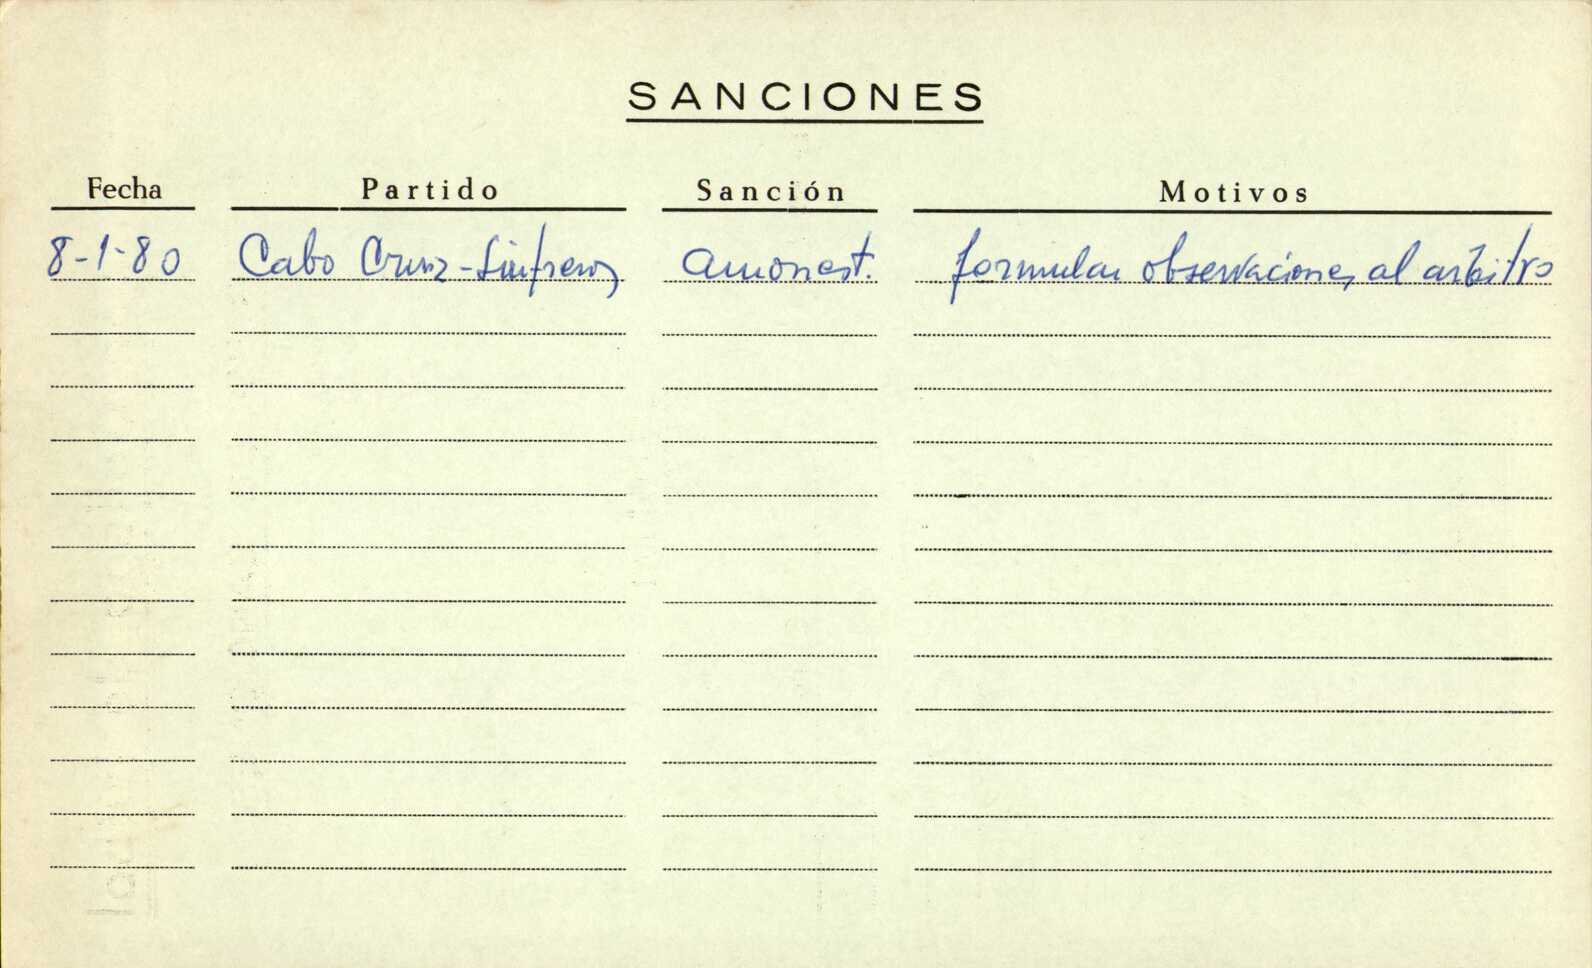 SANCIONES
Fecha Partido Sanción Motivos
8-1-80 Cabo Cruz- Amonest. formular observaciones al arbitro